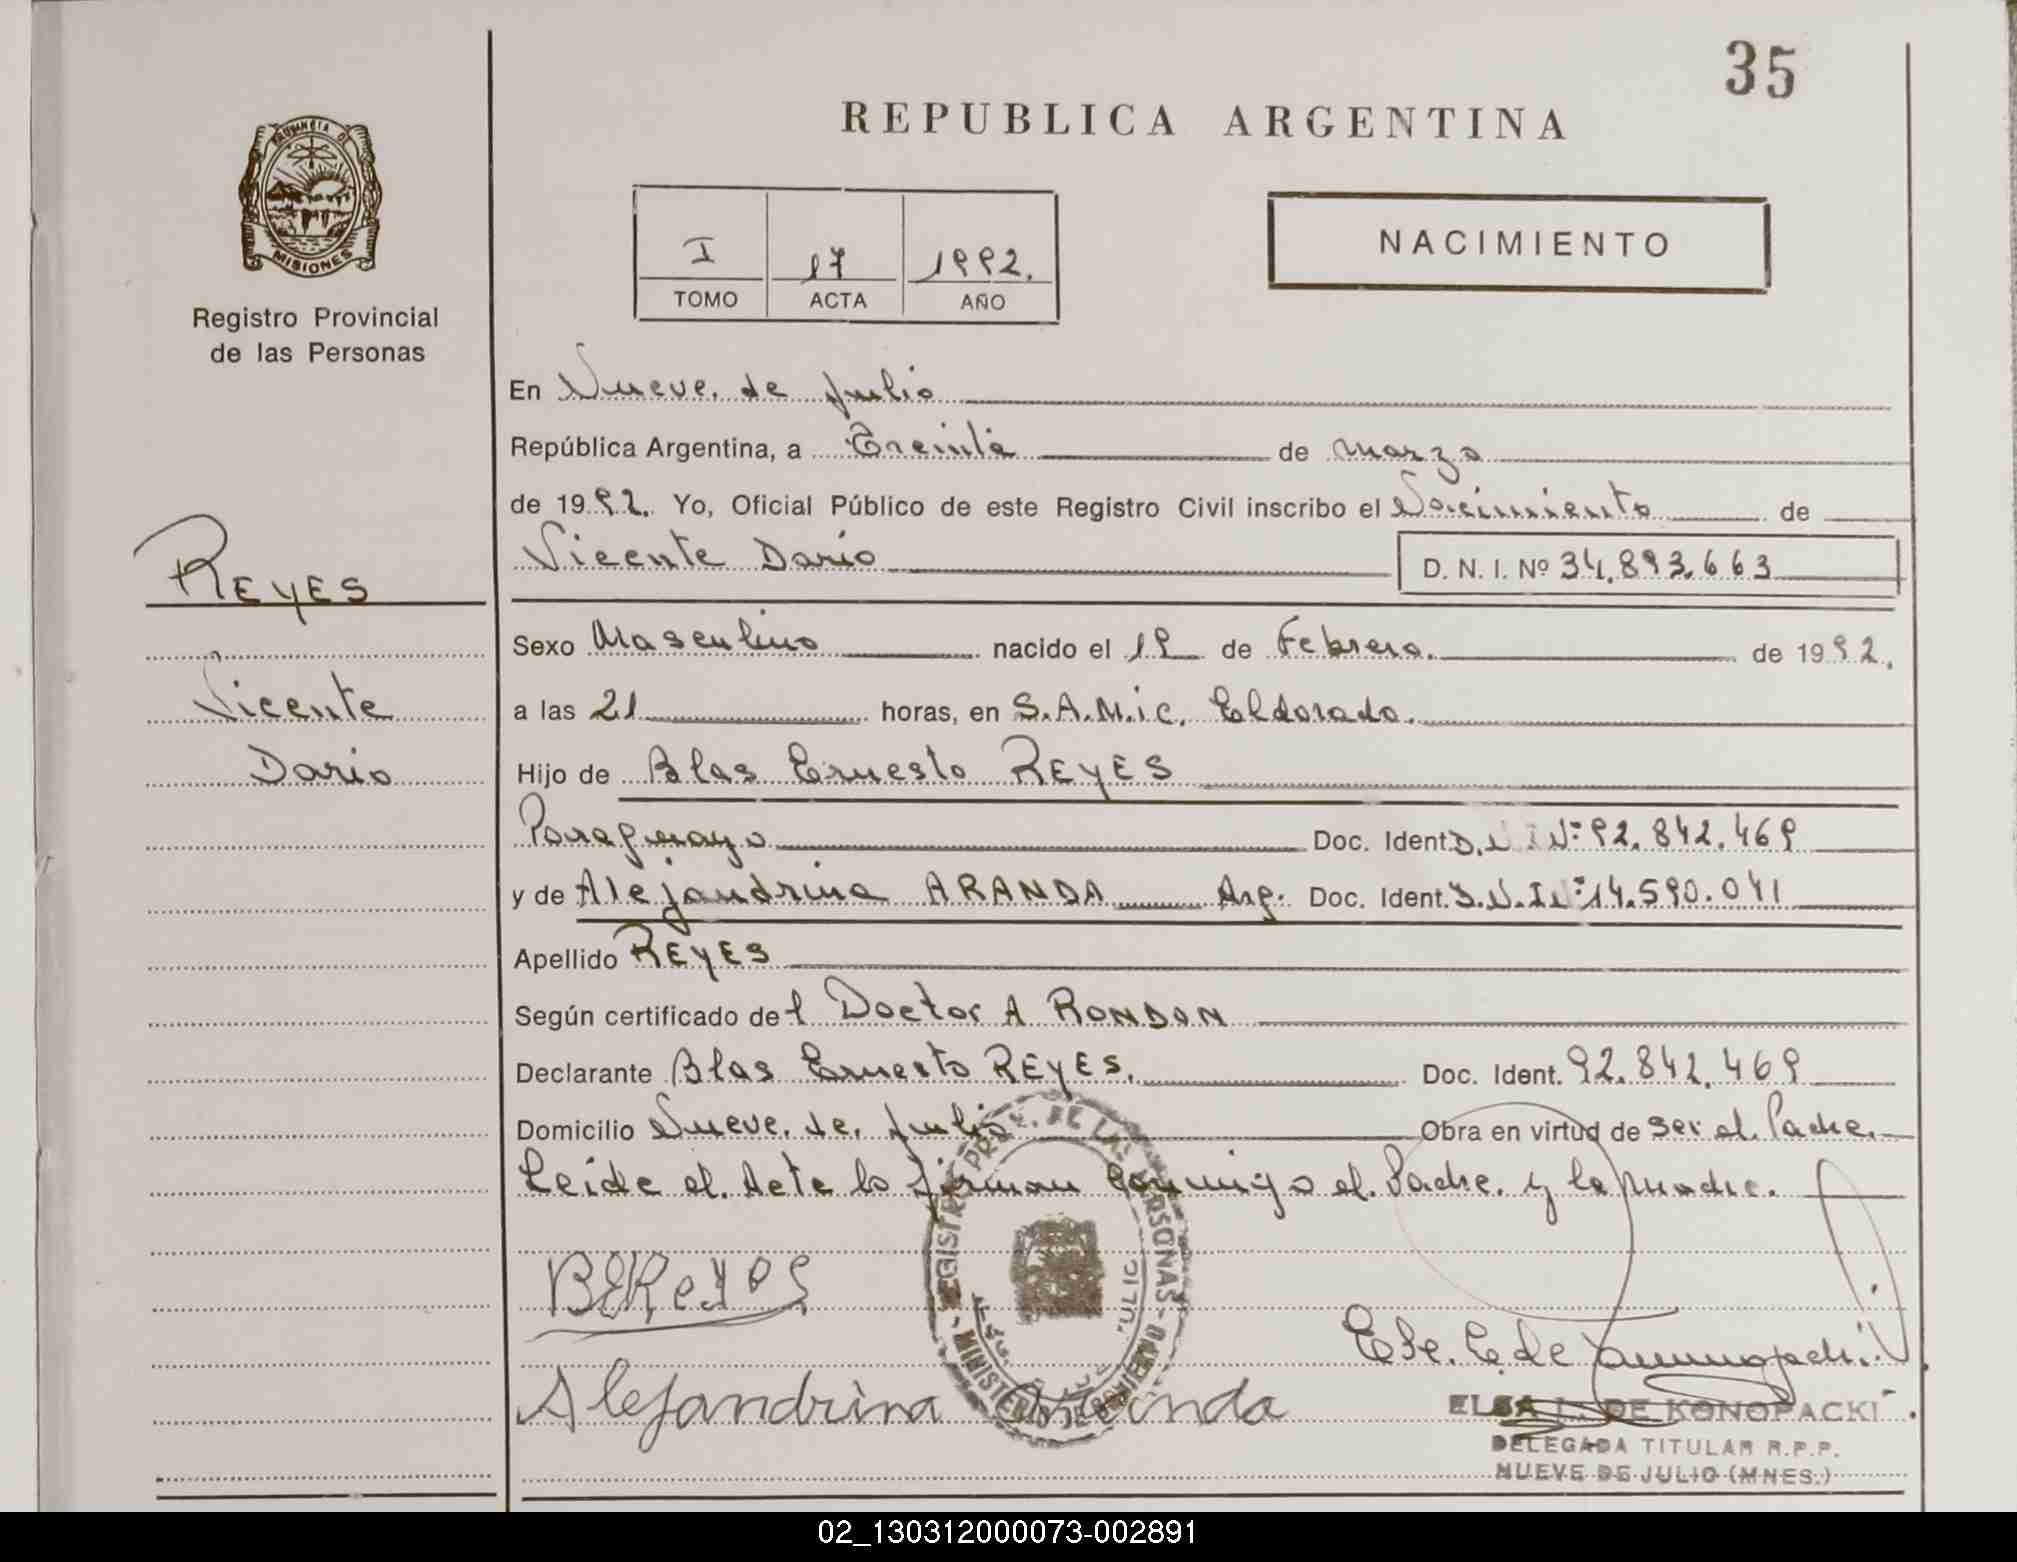 35
REPUBLICA ARGENTINA
PROVINCIA DE
MISIONES
Registro Provincial
de las Personas
I 17 1992.
TOMO ACTA AÑO
NACIMIENTO
En Nueve de Julio
República Argentina, a Treinta de marzo
de 1992. Yo, Oficial Público de este Registro Civil inscribo el Nacimiento de
Vicente Dario D. N. I. Nº 34.893.663
REYES
Vicente
Dario
Sexo Masculino nacido el 19 de Febrero. de 1992.
a las 21 horas, en S.A.M.ic. Eldorado.
Hijo de Blas Ernesto REYES
Paraguayo Doc. Ident. D.N.I Nº 92.842.469
y de Alejandrina ARANDA Arg. Doc. Ident. D.N.I Nº 14.590.041
Apellido REYES
Según certificado del Doctor A RONDON
Declarante Blas Ernesto REYES. Doc. Ident. 92.842.469
Domicilio Nueve de Julio Obra en virtud de ser el Padre.
Leida el Acta la firman conmigo el Padre y la madre.
BEReyes
Alejandrina Aranda
REGISTRO PROV. DE LAS PERSONAS - MINISTERIO DE GOBIERNO
ELSA L. DE KONOPACKI
DELEGADA TITULAR R.P.P.
NUEVE DE JULIO (MNES.)
02_130312000073-002891